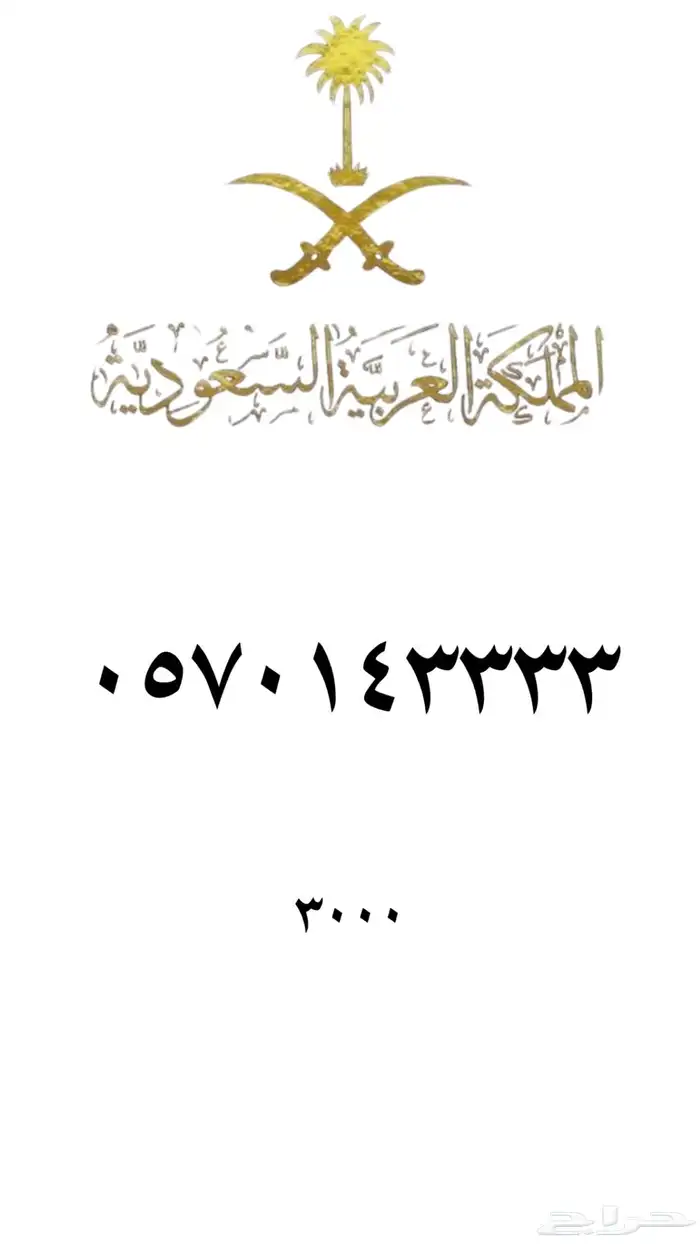 المملكة العربية السعودية
٠٥٧٠١٤٣٣٣٣
٣٠٠٠
حراج